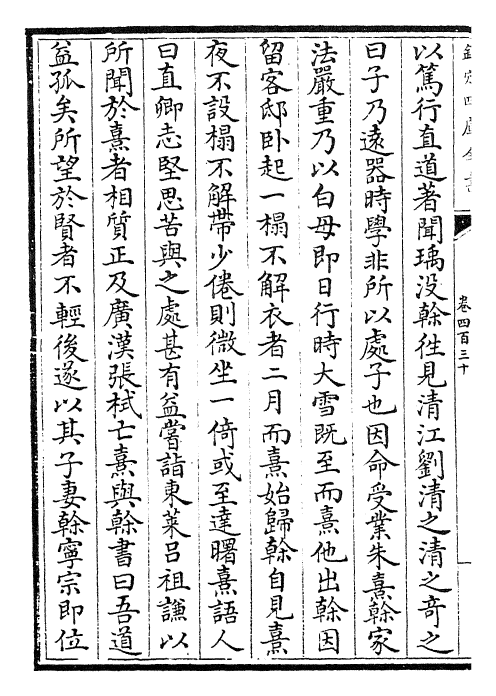 欽定四庫全書
卷四百三十
以篤行直道著聞瑀没榦往見清江劉清之清之奇之
曰子乃遠器時學非所以處子也因命受業朱熹榦家
法嚴重乃以白母即日行時大雪既至而熹他出榦因
留客邸卧起一榻不解衣者二月而熹始歸榦自見熹
夜不設榻不解帶少倦則微坐一倚或至達曙熹語人
曰直卿志堅思苦與之處甚有益嘗詣東萊吕祖謙以
所聞於熹者相質正及廣漢張栻亡熹與榦書曰吾道
益孤矣所望於賢者不輕後遂以其子妻榦寧宗即位